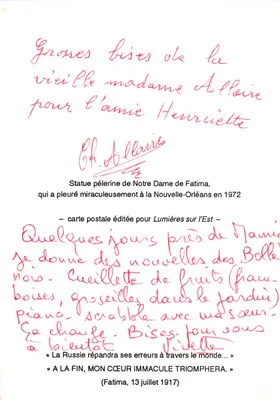 Grosses bises de la
vieille madame Allaire
pour l'amie Henriette
Ch. Allaire
Statue pélerine de Notre Dame de Fatima,
qui a pleuré miraculeusement à la Nouvelle-Orléans en 1972
– carte postale éditée pour Lumières sur l'Est –
Quelques jours près de Mamie
je donne des nouvelles des
nois. Cueillette de fruits (fram-
boises, groseilles dans le jardin)
piano. scrabble avec ma sœur.
Ça chauffe. Bises pour vous
à bientôt
« La Russie répandra ses erreurs à travers le monde... »
« A LA FIN, MON CŒUR IMMACULE TRIOMPHERA. »
(Fatima, 13 juillet 1917)